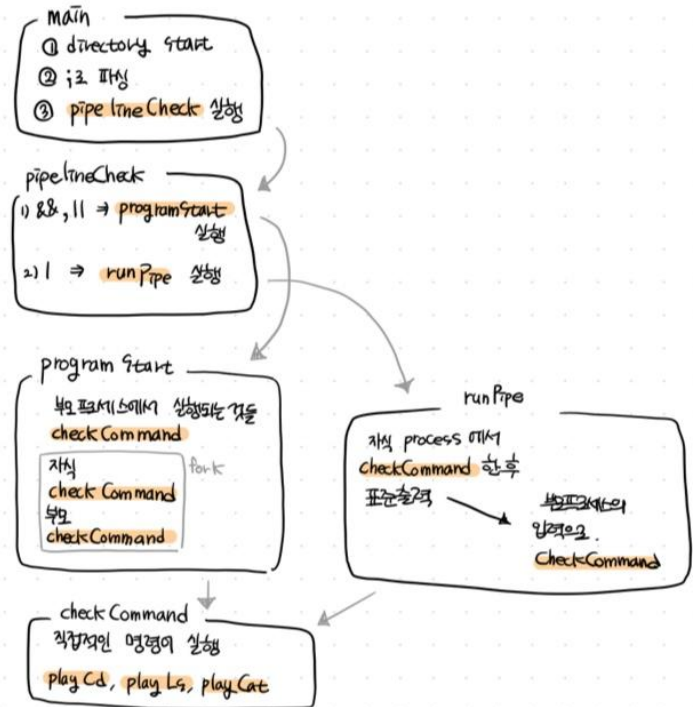 main
① directory start
② ;로 파싱
③ pipelineCheck 실행
pipelineCheck
1) &&, || ⇒ programStart
실행
2) | ⇒ runPipe 실행
program Start
부모프로세스에서 실행되는 것들
checkCommand
자식
fork
check Command
부모
checkCommand
runPipe
자식 process 에서
checkCommand 한 후
표준출력
부모프로세스의
입력으로.
CheckCommand
check Command
직접적인 명령어 실행
play Cd, play Ls, play Cat